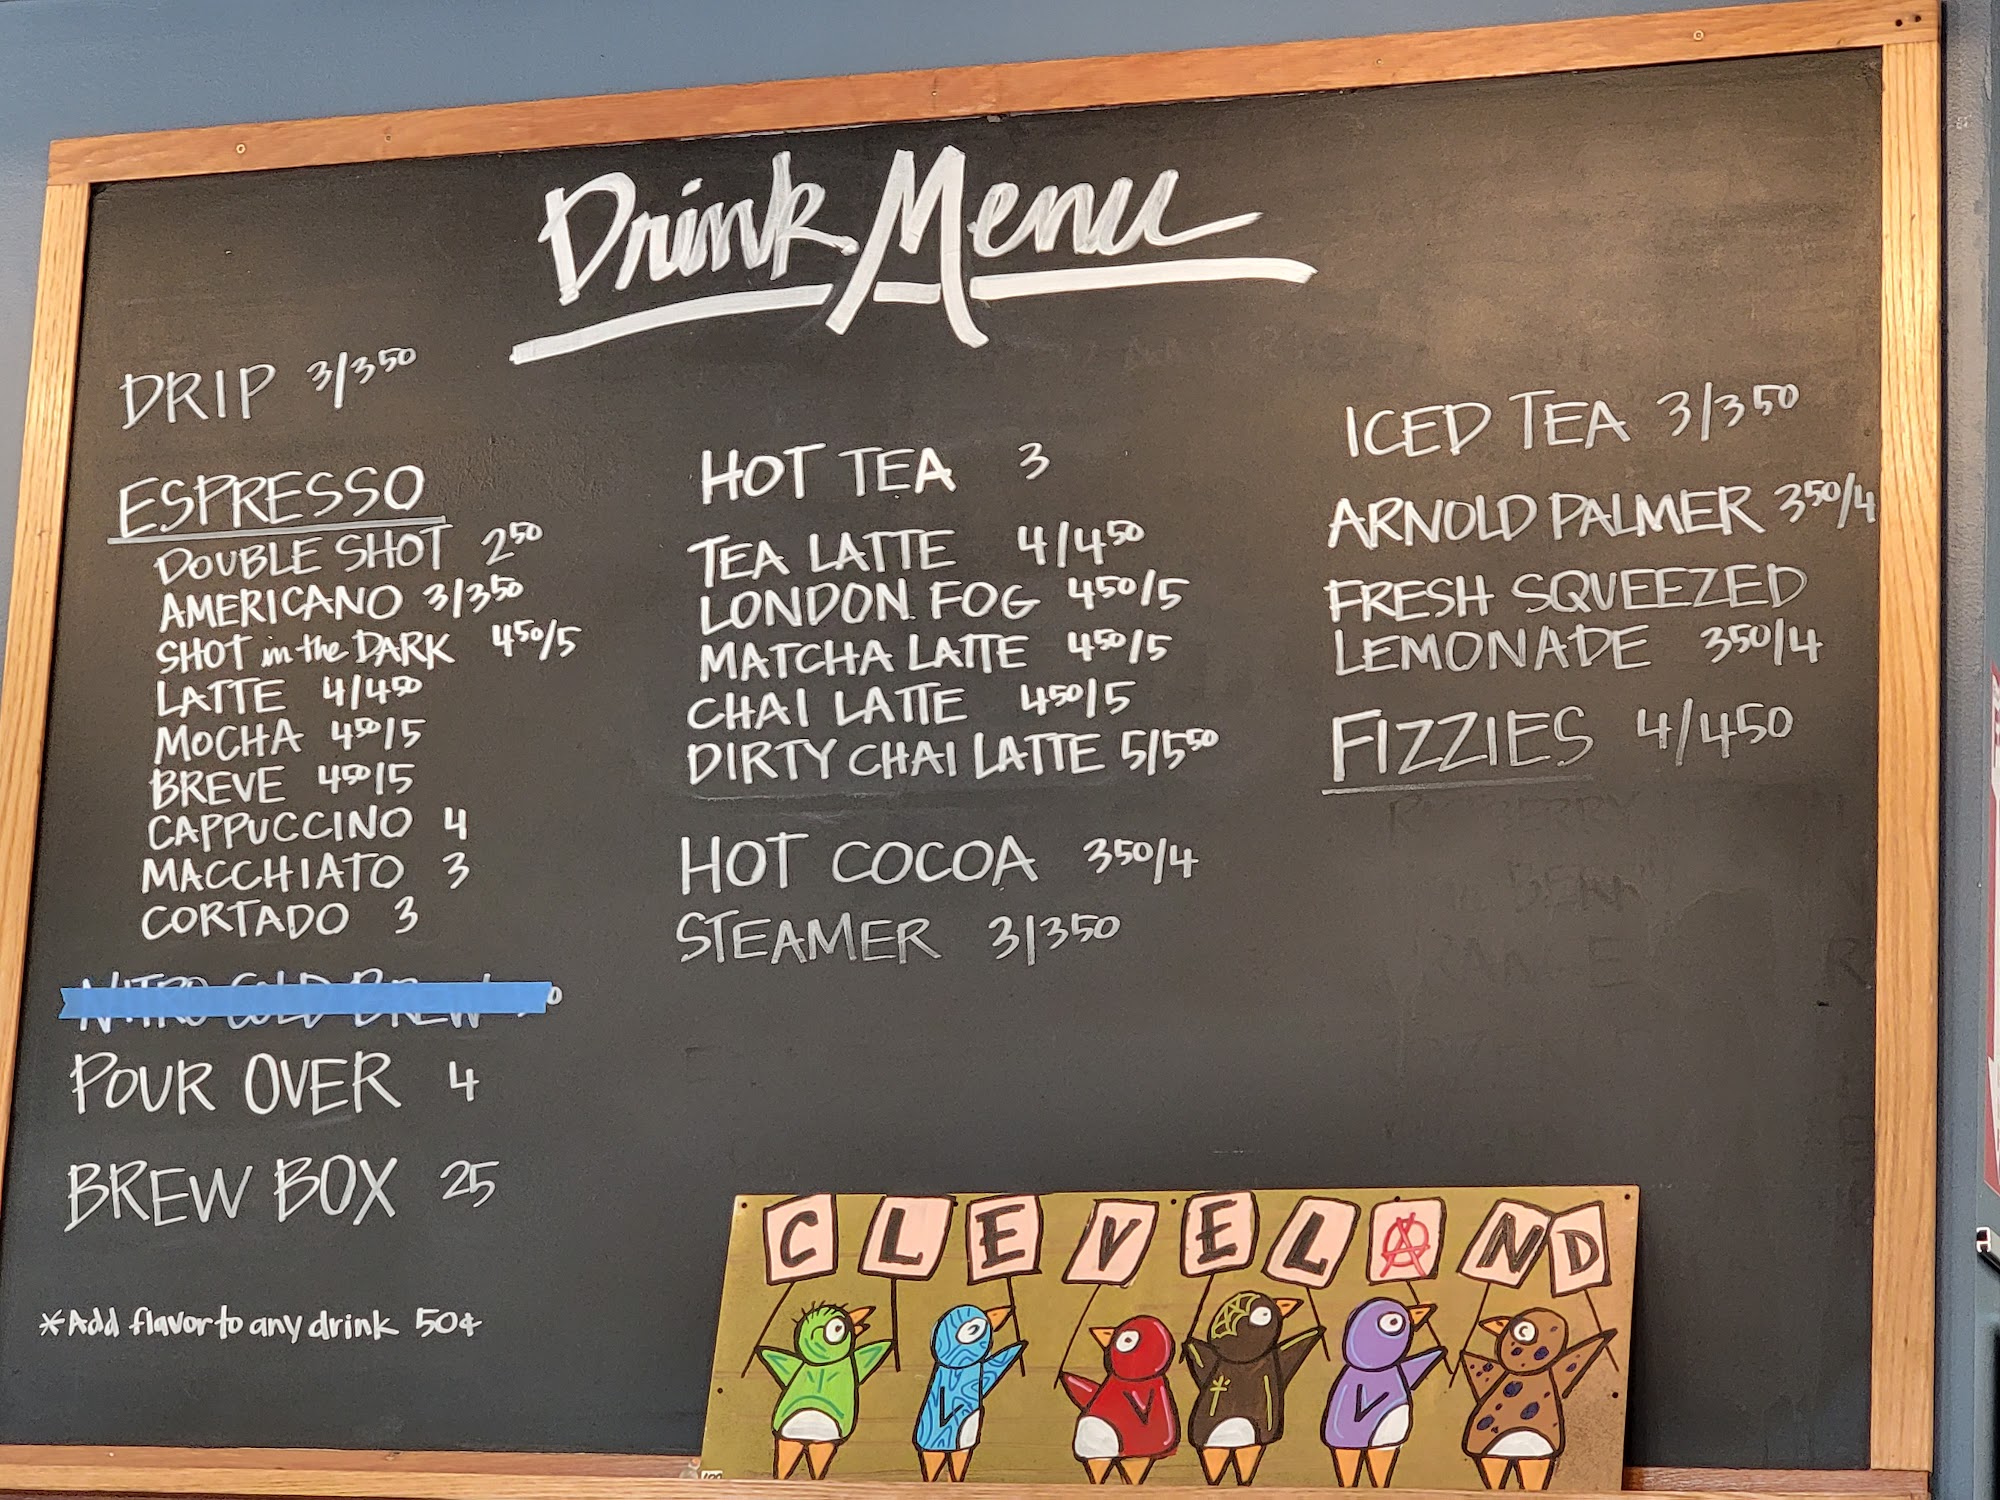 Drink Menu
DRIP 3/350
ESPRESSO
DOUBLE SHOT 250
AMERICANO 3/350
SHOT in the DARK 450/5
LATTE 4/450
MOCHA 450/5
BREVE 450/5
CAPPUCCINO 4
MACCHIATO 3
CORTADO 3
NITRO COLD BREW
POUR OVER 4
BREW BOX 25
*Add flavor to any drink 50¢
HOT TEA 3
TEA LATTE 4/450
LONDON FOG 450/5
MATCHA LATTE 450/5
CHAI LATTE 450/5
DIRTY CHAI LATTE 5/550
HOT COCOA 350/4
STEAMER 3/350
ICED TEA 3/350
ARNOLD PALMER 350/4
FRESH SQUEEZED
LEMONADE 350/4
FIZZIES 4/450
CLEVELAND